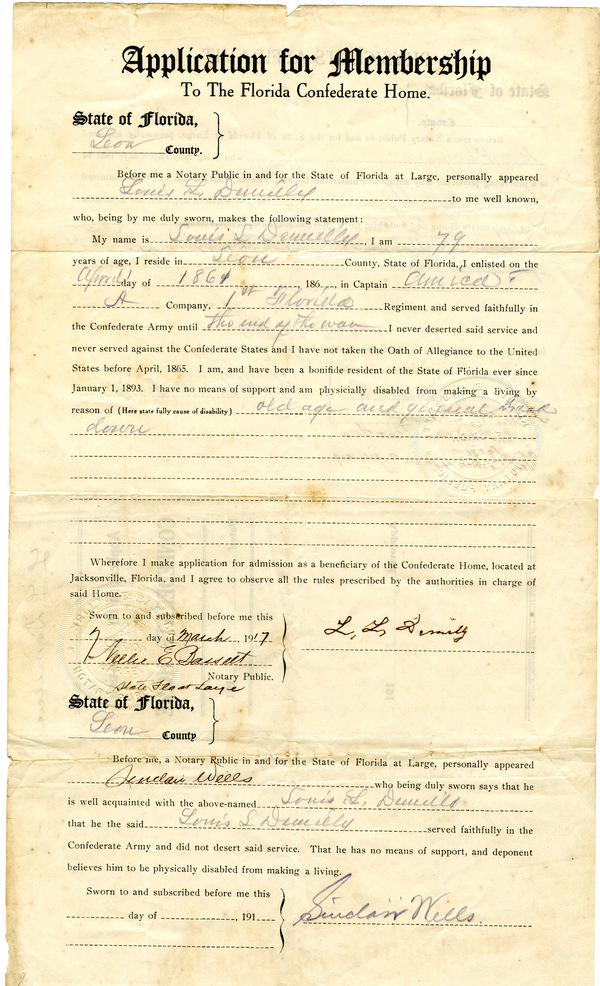 Application for Membership
To The Florida Confederate Home.
State of Florida,
Leon County.
Before me a Notary Public in and for the State of Florida at Large, personally appeared
Louis L Demilly to me well known,
who, being by me duly sworn, makes the following statement:
My name is Louis L Demilly, I am 79
years of age, I reside in Leon County, State of Florida, I enlisted on the
April day of 1861 186 in Captain
A Company, 1st Florida Regiment and served faithfully in
the Confederate Army until the end of the war I never deserted said service and
never served against the Confederate States and I have not taken the Oath of Allegiance to the United
States before April, 1865. I am, and have been a bonifide resident of the State of Florida ever since
January 1, 1893. I have no means of support and am physicially disabled from making a living by
reason of (Here state fully cause of disability) old age and general
down
Wherefore I make application for admission as a beneficiary of the Confederate Home, located at
Jacksonville, Florida, and I agree to observe all the rules prescribed by the authorities in charge of
said Home.
Sworn to and subscribed before me this
7 day of March, 1917
L. L. Demilly
Nellie E Bassett
Notary Public.
State Fla at Large
State of Florida,
Leon County
Before me, a Notary Public in and for the State of Florida at Large, personally appeared
Sinclair Wells who being duly sworn says that he
is well acquainted with the above-named Louis L. Demilly
that he the said Louis L Demilly served faithfully in the
Confederate Army and did not desert said service. That he has no means of support, and deponent
believes him to be physically disabled from making a living.
Sworn to and subscribed before me this
day of , 191
Sinclair Wells.